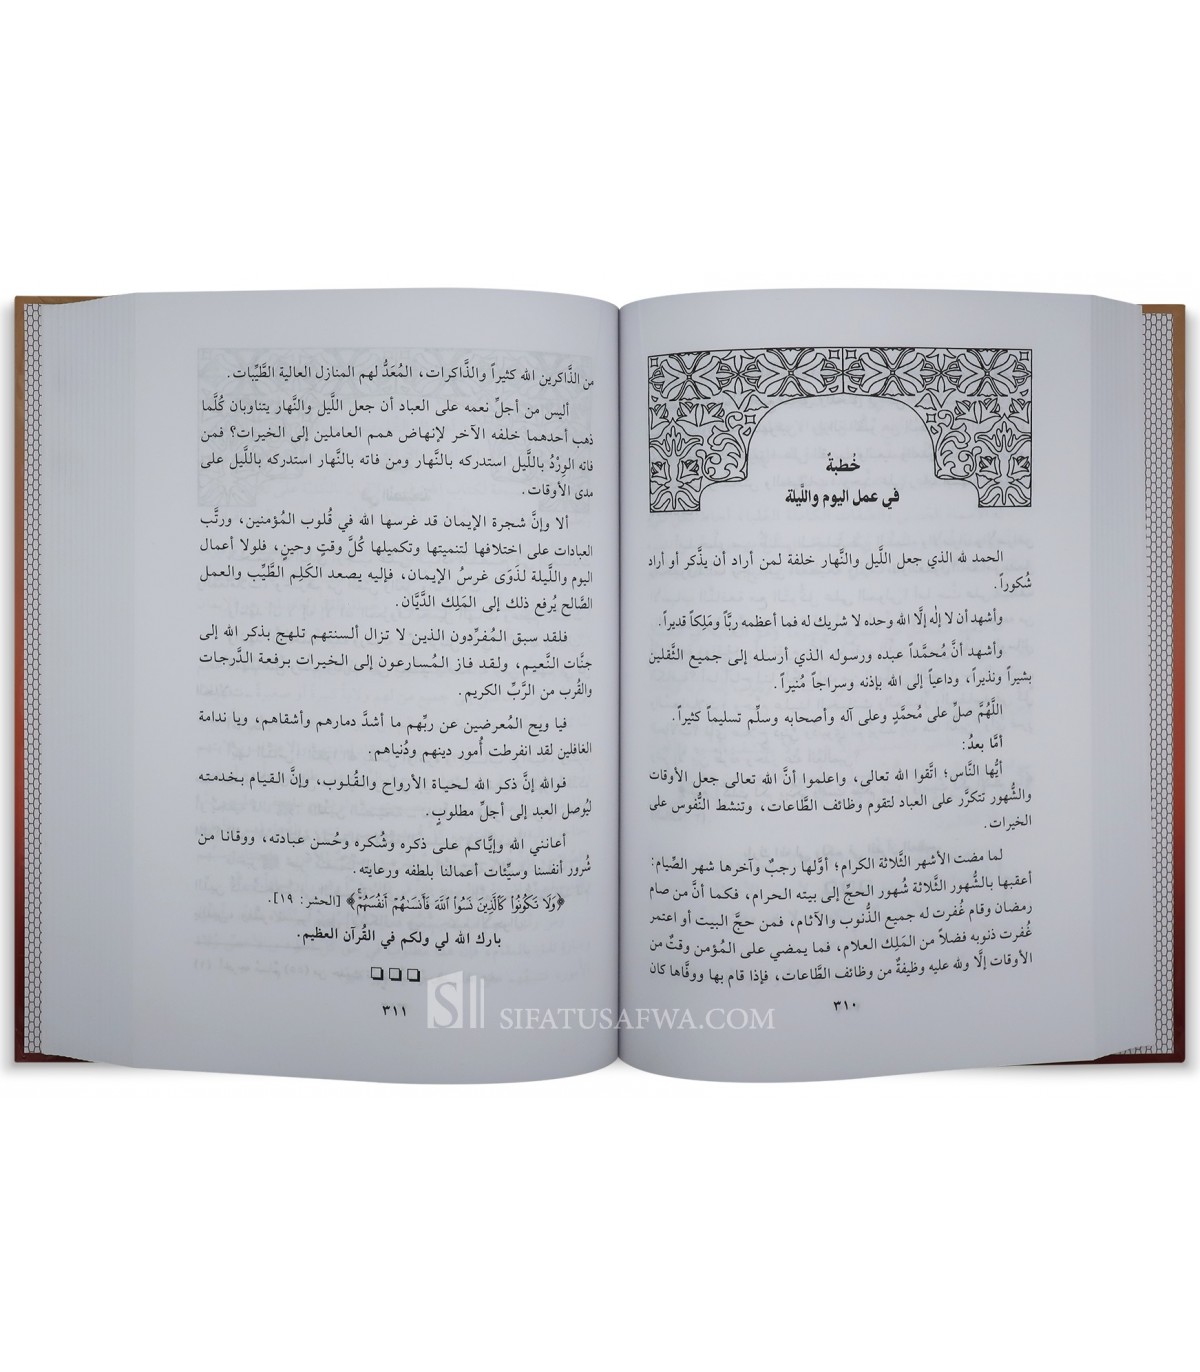 خُطبةٌ
في عمل اليوم واللَّيلة
الحمد لله الذي جعل اللَّيل والنَّهار خلفة لمن أراد أن يذَّكر أو أراد
شُكوراً.
وأشهد أن لا إلٰه إلَّا الله وحده لا شريك له فما أعظمه ربًّا ومَلِكاً قديراً.
وأشهد أنَّ مُحمَّداً عبده ورسوله الذي أرسله إلى جميع الثَّقلين
بشيراً ونذيراً، وداعياً إلى الله بإذنه وسراجاً مُنيراً.
اللَّهُمَّ صلِّ على مُحمَّدٍ وعلى آله وأصحابه وسلِّم تسليماً كثيراً.
أمَّا بعدُ:
أيُّها النَّاس؛ اتَّقوا الله تعالى، واعلموا أنَّ الله تعالى جعل الأوقات
والشُّهور تتكرَّر على العباد لتقوم وظائف الطَّاعات، وتنشط النُّفوس على
الخيرات.
لما مضت الأشهر الثَّلاثة الكرام؛ أوَّلها رجبٌ وآخرها شهر الصِّيام:
أعقبها بالشُّهور الثَّلاثة شُهور الحجِّ إلى بيته الحرام، فكما أنَّ من صام
رمضان وقام غُفرت له جميع الذُّنوب والآثام، فمن حجَّ البيت أو اعتمر
غُفرت ذنوبه فضلاً من المَلِك العلام، فما يمضي على المُؤمن وقتٌ من
الأوقات إلَّا ولله عليه وظيفةٌ من وظائف الطَّاعات، فإذا قام بها ووفَّاها كان
٣١٠
من الذَّاكرين الله كثيراً والذَّاكرات، المُعَدُّ لهم المنازل العالية الطَّيِّبات.
أليس من أجلِّ نعمه على العباد أن جعل اللَّيل والنَّهار يتناوبان كُلَّما
ذهب أحدهما خلفه الآخر لإنهاض همم العاملين إلى الخيرات؟ فمن
فاته الوِرْدُ باللَّيل استدركه بالنَّهار ومن فاته بالنَّهار استدركه باللَّيل على
مدى الأوقات.
ألا وإنَّ شجرة الإيمان قد غرسها الله في قُلوب المُؤمنين، ورتَّب
العبادات على اختلافها لتنميتها وتكميلها كُلَّ وقتٍ وحينٍ، فلولا أعمال
اليوم واللَّيلة لذَوَى غرسُ الإيمان، فإليه يصعد الكَلِم الطَّيِّب والعمل
الصَّالح يُرفع ذلك إلى المَلِك الدَّيَّان.
فلقد سبق المُفرِّدون الذين لا تزال ألسنتهم تلهج بذكر الله إلى
جنَّات النَّعيم، ولقد فاز المُسارعون إلى الخيرات برفعة الدَّرجات
والقُرب من الرَّبِّ الكريم.
فيا ويح المُعرضين عن ربِّهم ما أشدَّ دمارهم وأشقاهم، ويا ندامة
الغافلين لقد انفرطت أُمور دينهم ودُنياهم.
فوالله إنَّ ذكر الله لحياة الأرواح والقُلوب، وإنَّ القيام بخدمته
ليُوصل العبد إلى أجلِّ مطلوبٍ.
أعانني الله وإيَّاكم على ذكره وشُكره وحُسن عبادته، ووقانا من
شُرور أنفسنا وسيِّئات أعمالنا بلطفه ورعايته.
﴿وَلَا تَكُونُوا۟ كَٱلَّذِينَ نَسُوا۟ ٱللَّهَ فَأَنسَىٰهُمْ أَنفُسَهُمْ﴾ [الحشر: ١٩].
بارك الله لي ولكم في القُرآن العظيم.
٣١١
SIFATUSAFWA.COM